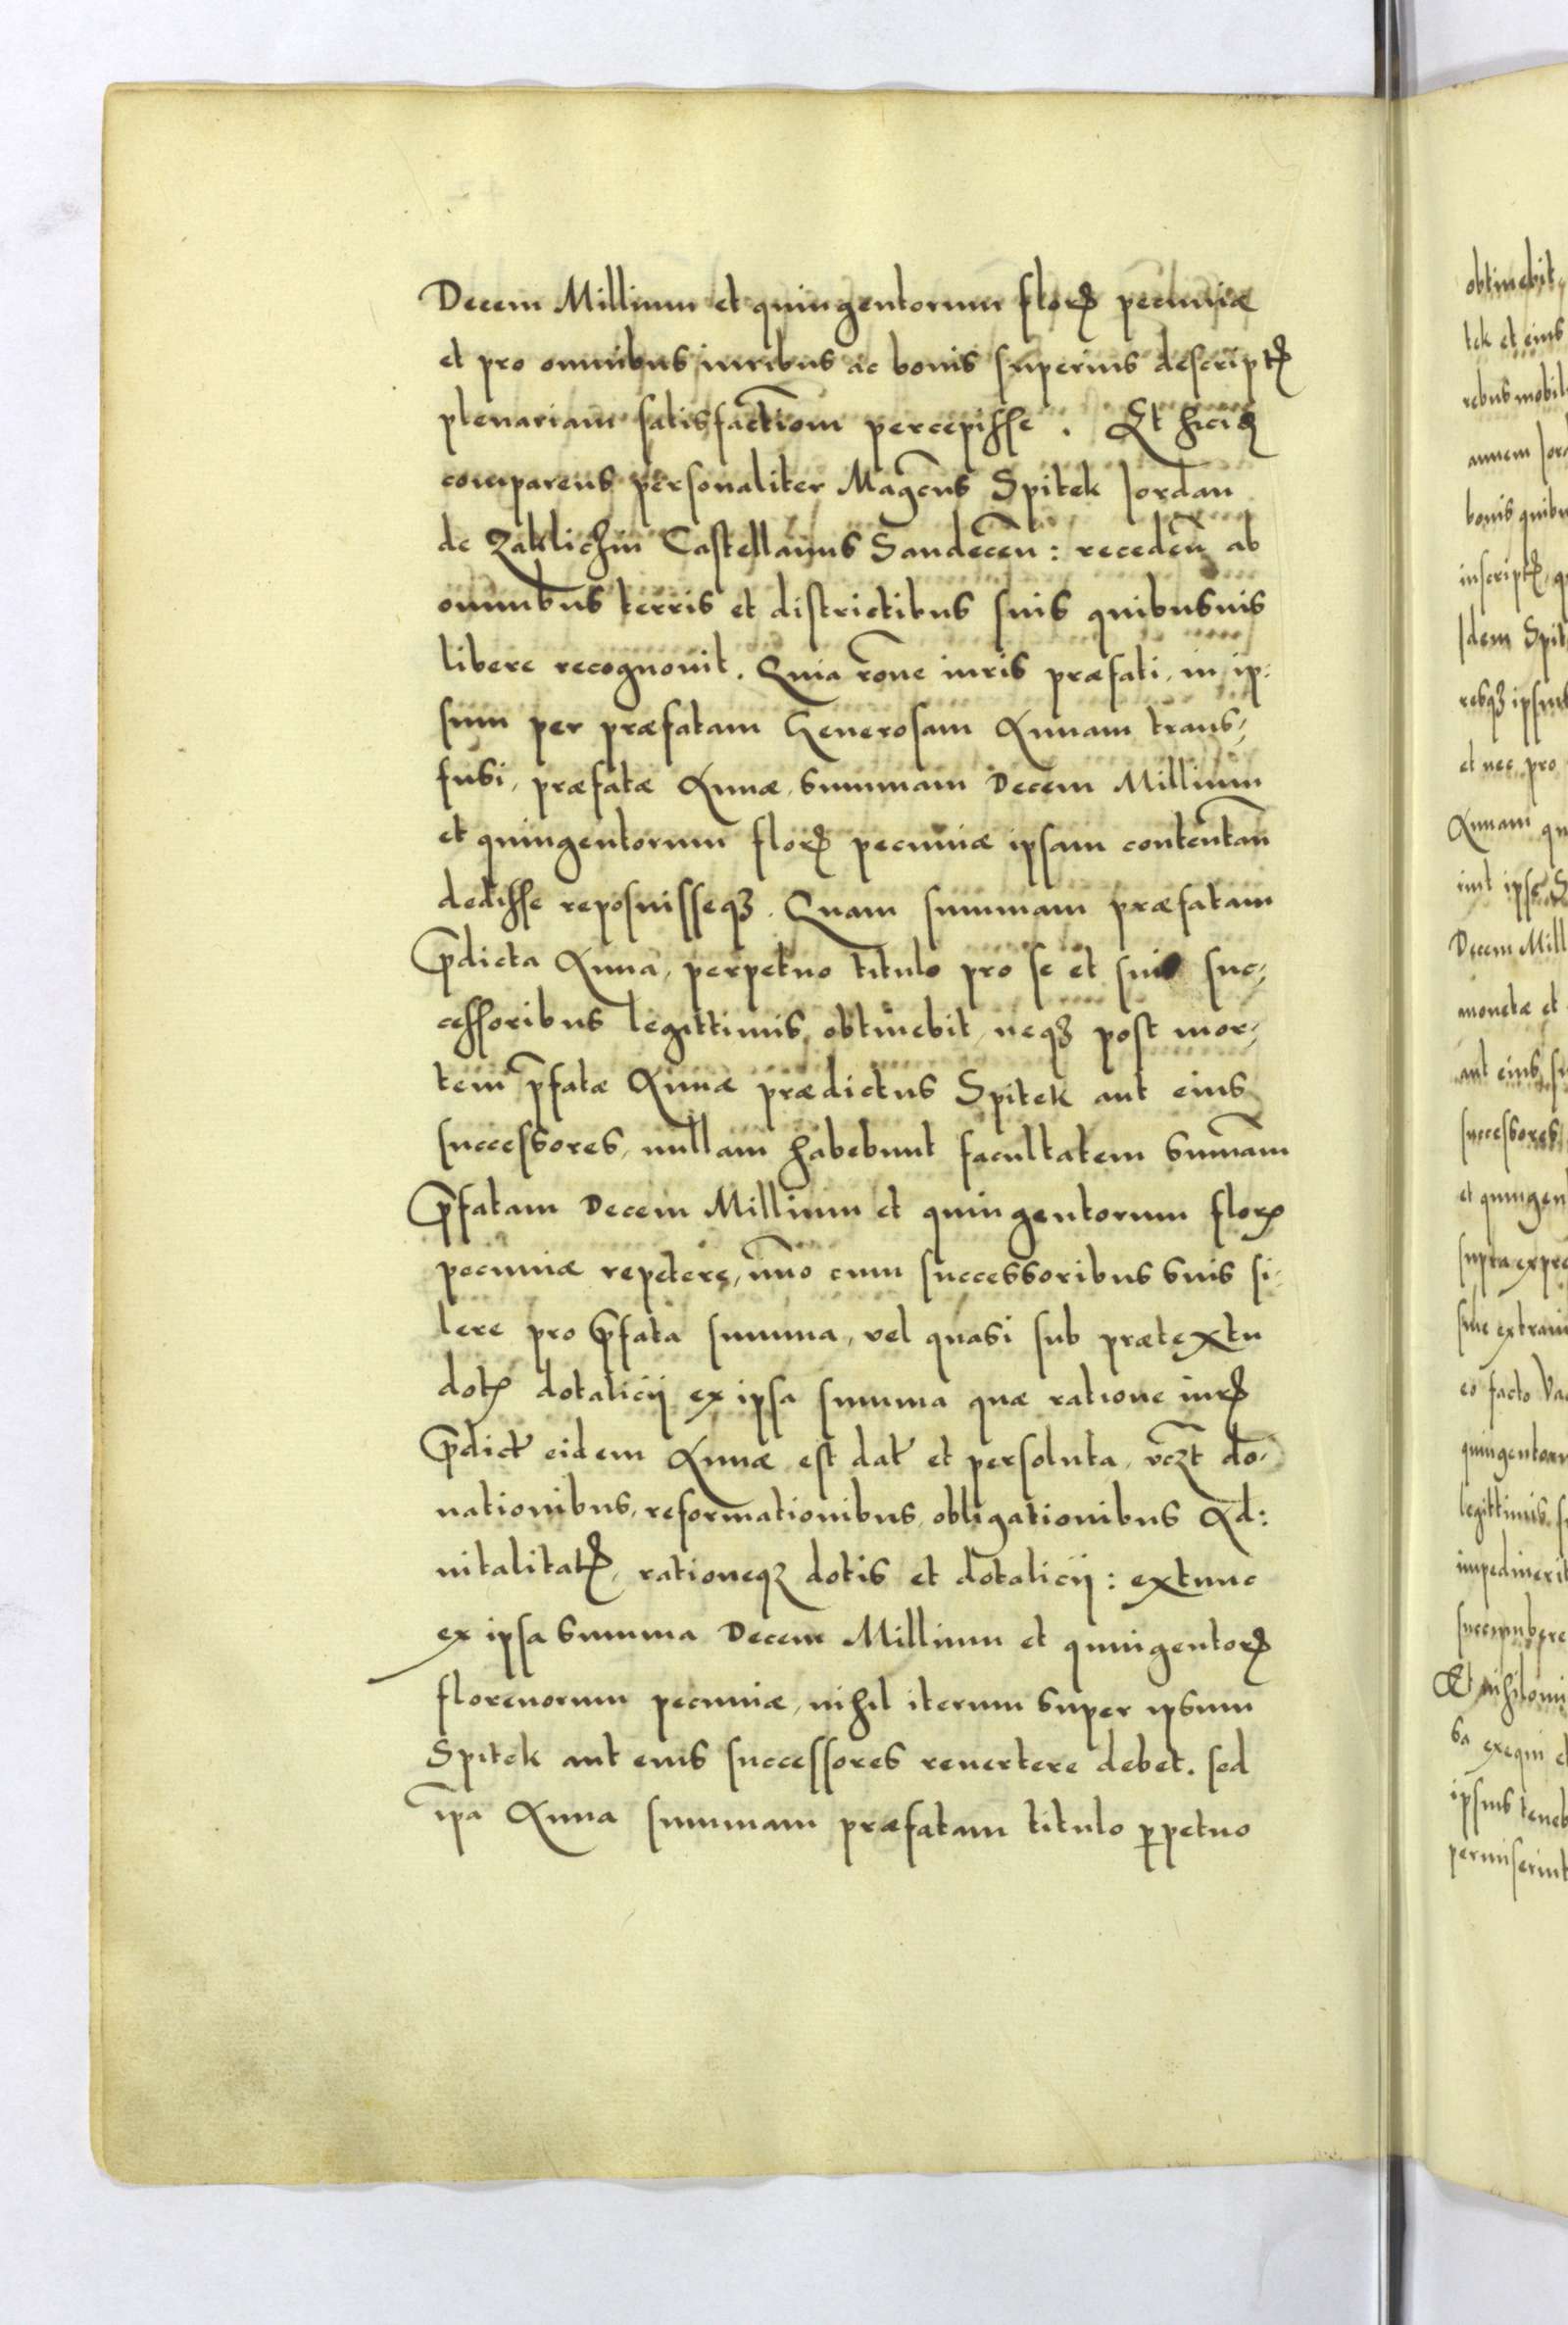 Decem Millium et quingentorum floꝝ pecuniæ
et pro omnibus iuribus ac bonis superius descriptꝭ
plenariam satisfactiom̄ percepisse. Et hici
comparens personaliter Magcus̄ Spitek Jordan
de Zaklichin Castellanus Sandecen̄: receden̄ ab
omnibus terris et districtibus suis quibusuis
libere recognouit. Quia rōne iuris præfati, in ip:
sum per præfatam Generosam Annam trans,
fusi, præfatæ Annæ, summam Decem Millium
et quingentorum floꝝ pecuniæ ipsam contentan̄
dedisse reposuisseqꝫ. Quam summam præfatam
p̄dicta Anna, perpetuo titulo pro se et suis suc,
cessoribus legittimis, obtinebit, neqꝫ post mor,
tem p̄fatæ Annæ prædictus Spitek aut eius
successores, nullam habebunt facultatem sumām
p̄fatam Decem Millium et quingentorum floꝝ
pecuniæ repetere, im̄o cum successoribus suis si:
lere pro p̄fata summa, vel quasi sub prætextu
dotꝭ dotalicij ex ipsa summa quæ ratione iurꝭ
p̄dict̄ eidem Annæ est dat̄ et persoluta, vcꝫt̄ do:
nationibus, reformationibus, obligationibus Ad:
uitalitatꝭ, rationeqꝫ dotis et dotalicij: extunc
ex ipsa summa Decem Millium et quingentoꝝ
florenorum pecuniæ, nihil iterum super ipsum
Spitek aut eius successores reuertere debet. sed
ip̄a Anna summam præfatam titulo ꝑpetuo
obtinebit,
tek et eius
rebus mobil
annem Jor
bonis quibu
inscriptꝭ, q
Idem Spit
rebqꝫ ipsius
et nec pro
Annam qu
int ipse S
Decem Mill
monetæ et
aut eius su
successores,
et quingen
supra expre
siue extrani
eo facto Va
quingentoru
legittimis, s
impedinerit
succumbere
Et nihilomi
sa exequi et
ipsius teneb
permiserint